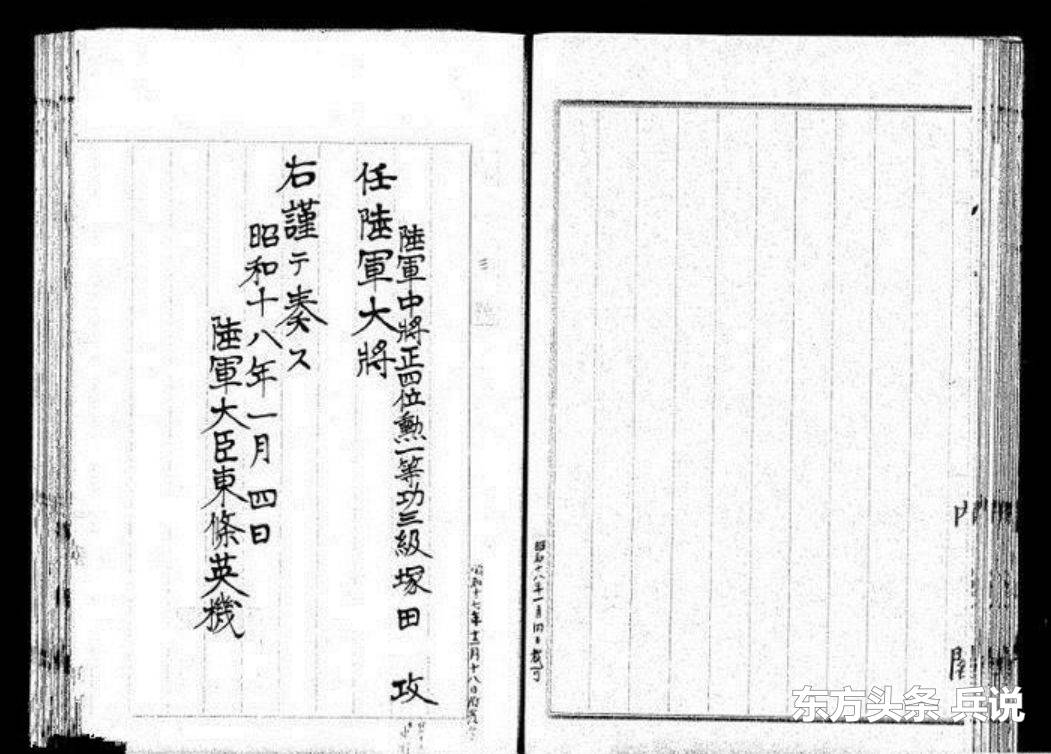 内閣
昭和十八年一月四日裁可
陸軍中將正四位勲一等功三級塚田 攻
任陸軍大將
右謹テ奏ス
昭和十八年一月四日
陸軍大臣東條英機
东方头条 兵说